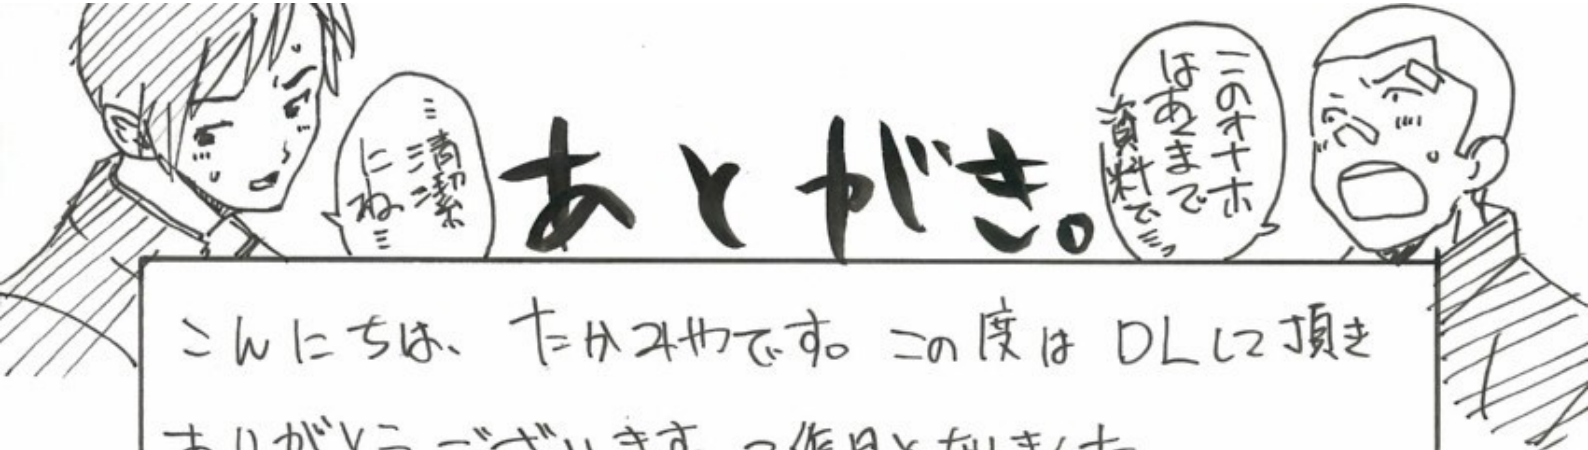 あとがき。
このオナホ
はあくまで
資料で…
清潔
にね…
こんにちは、たかみやです。この度はDLして頂き
ありがとうございます。2作目となりました